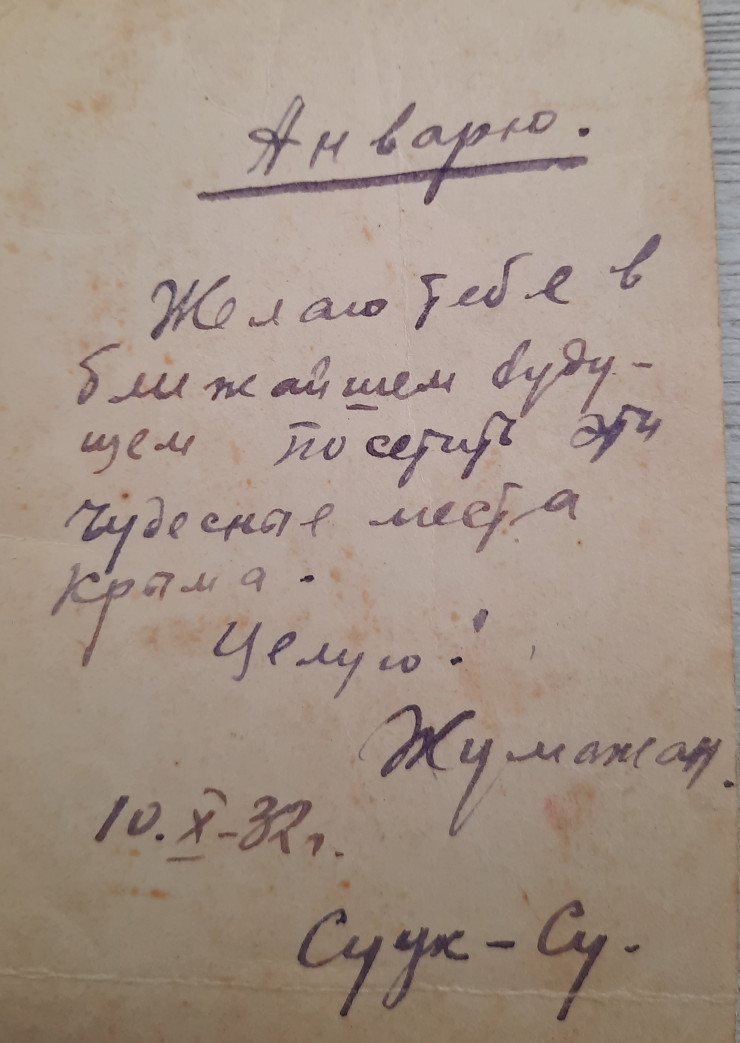 Анварю.
Желаю тебе в
ближайшем буду-
щем посетить эти
чудесные места
Крыма.
Целую!
Жумажан.
10.X-32г.
Суук-Су.